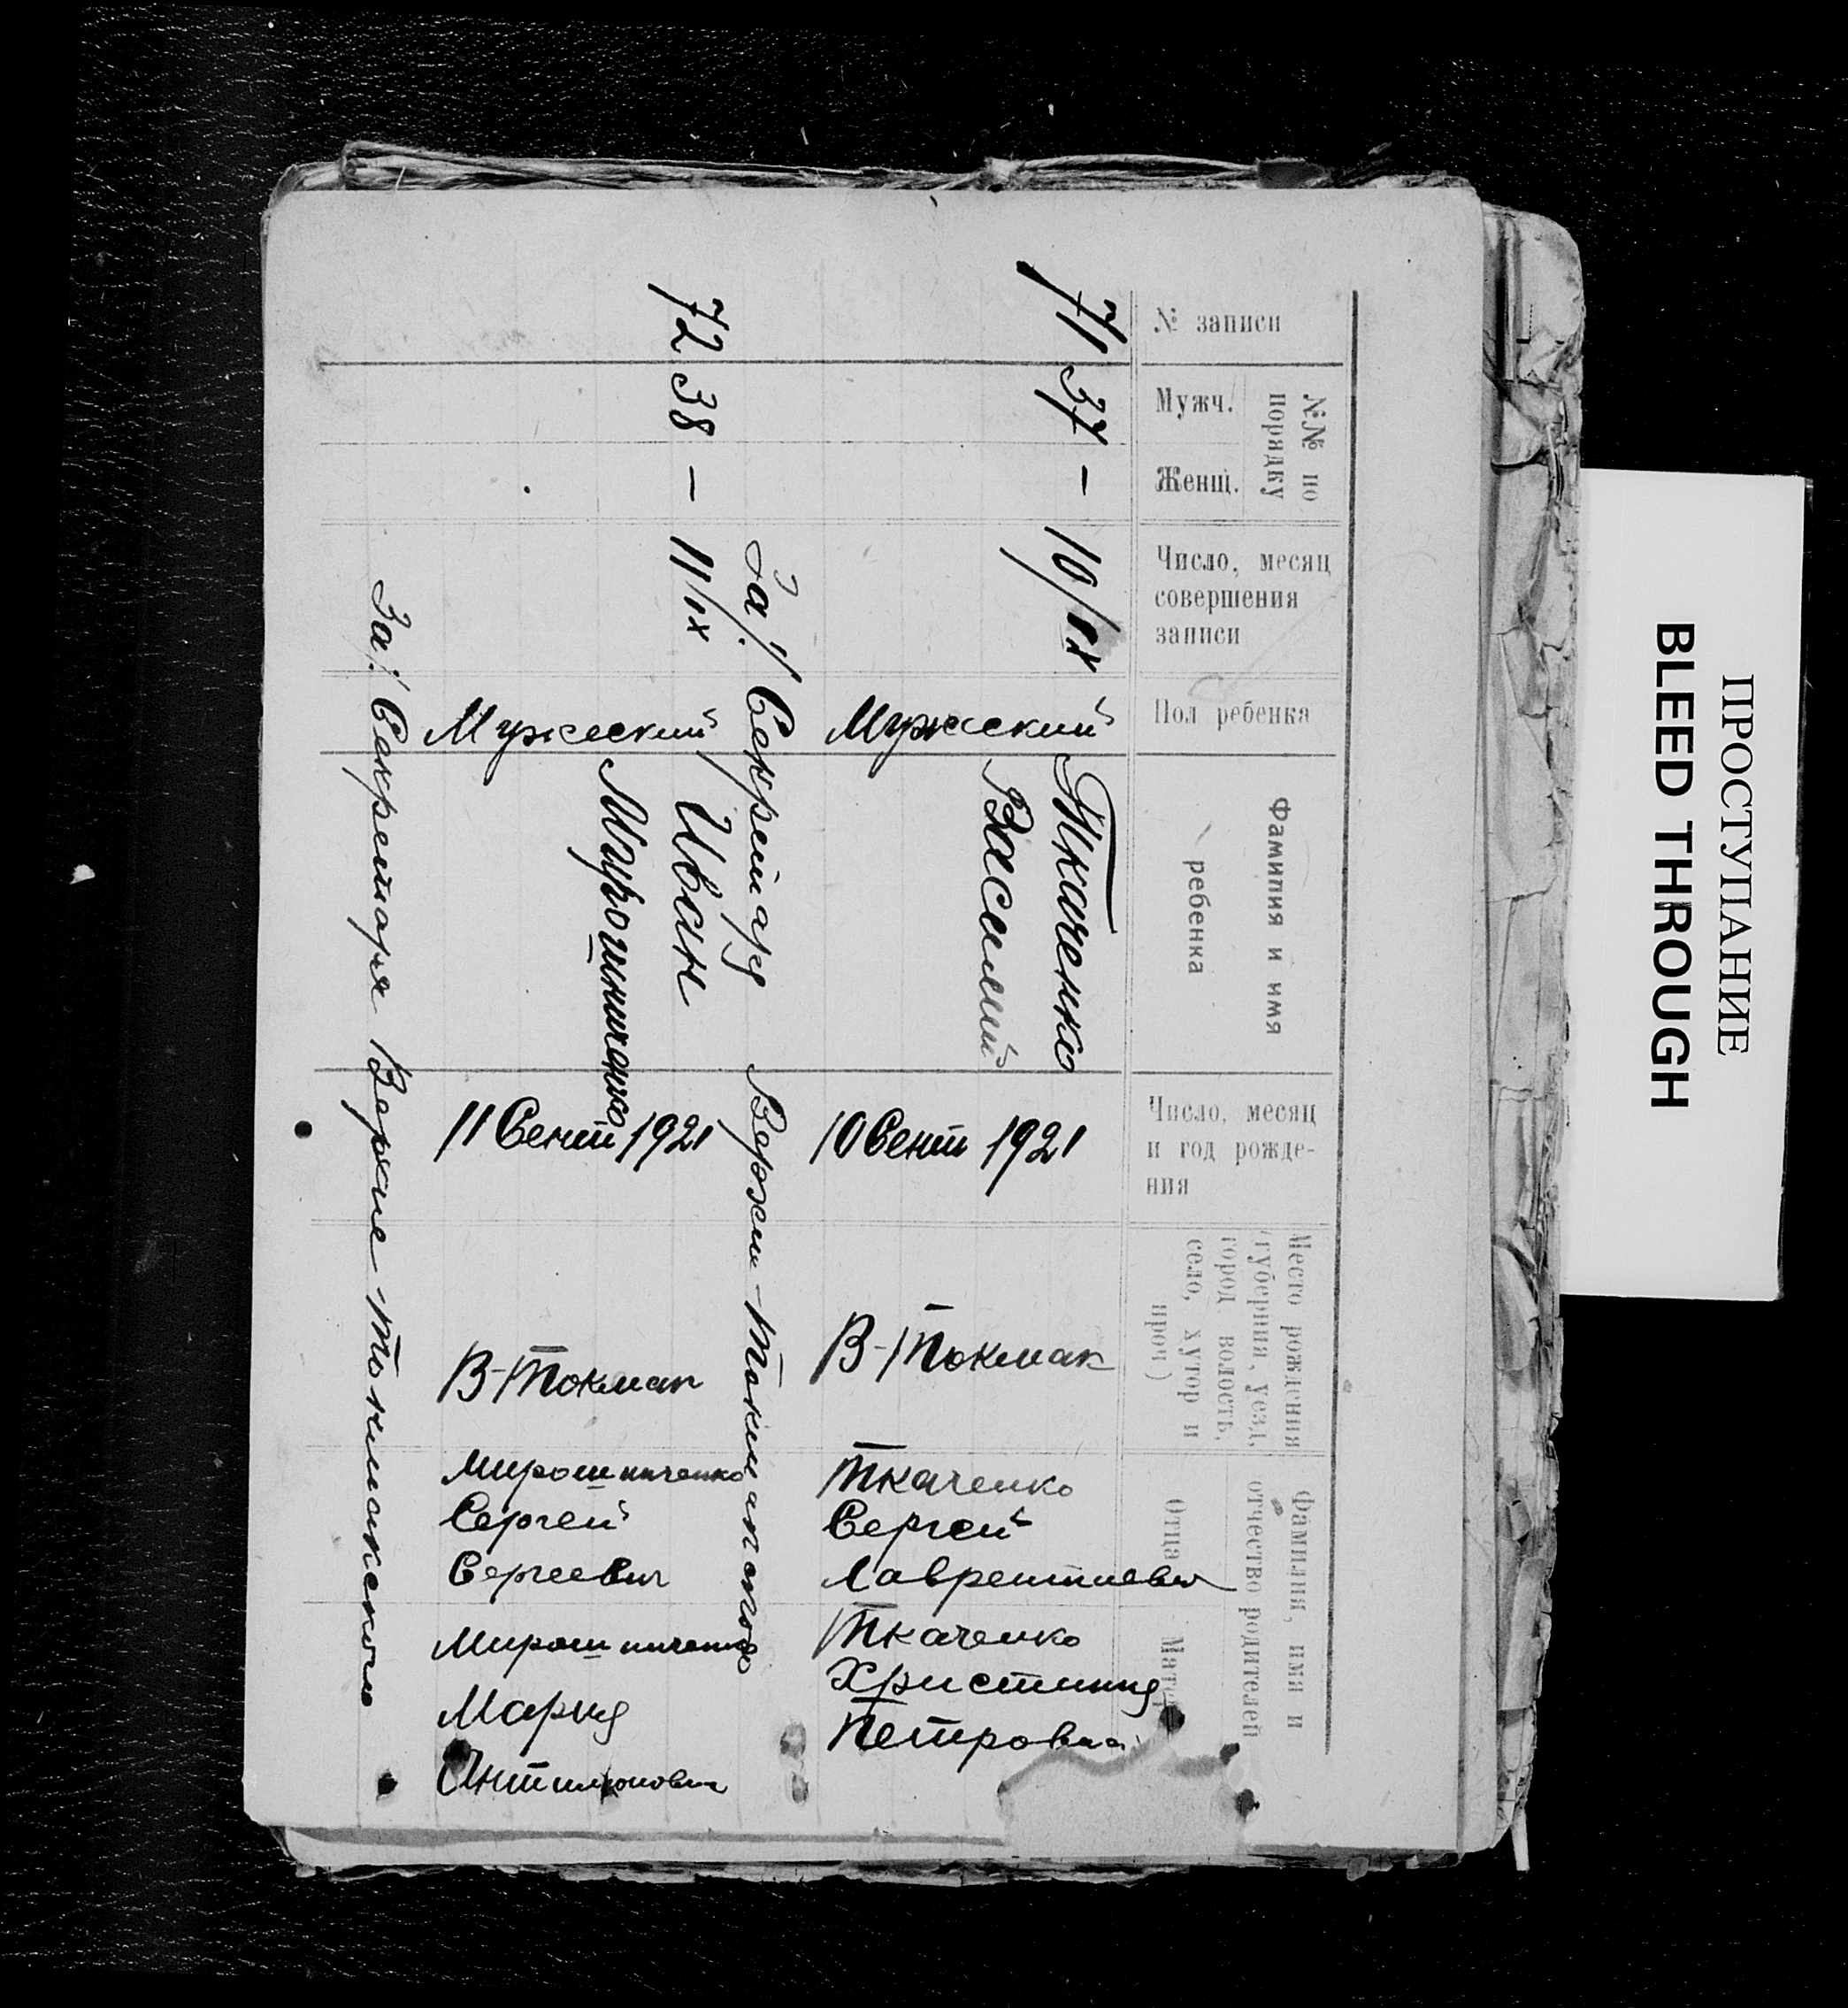 № записи
№№ по
порядку
Мужч.
Женщ.
Число, месяц
совершения
записи
Пол ребенка
Фамилия и имя
ребенка
Число, месяц
и год рожде-
ния
Место рождения
(губерния, уезд,
город волость,
село, хутор и
проч)
Фамилия, имя и
отчество родителей
Отца
Матер
71
37
—
10/IX
Мужеский
Ткаченко
Василий
10 Сент 1921
В-Токмак
Ткаченко
Сергей
Лаврентиевич
Ткаченко
Христиния
Петровна
За/. Секретаря Верхне-Токмакского
72
38
—
11/IX
Мужеский
Иван
Мирошниченко
11 Сент 1921
В-Токмак
Мирошниченко
Сергей
Сергеевич
Мирошниченко
Мария
За/. Секретаря Верхне-Токмакского
ПРОСТУПАНИЕ
BLEED THROUGH